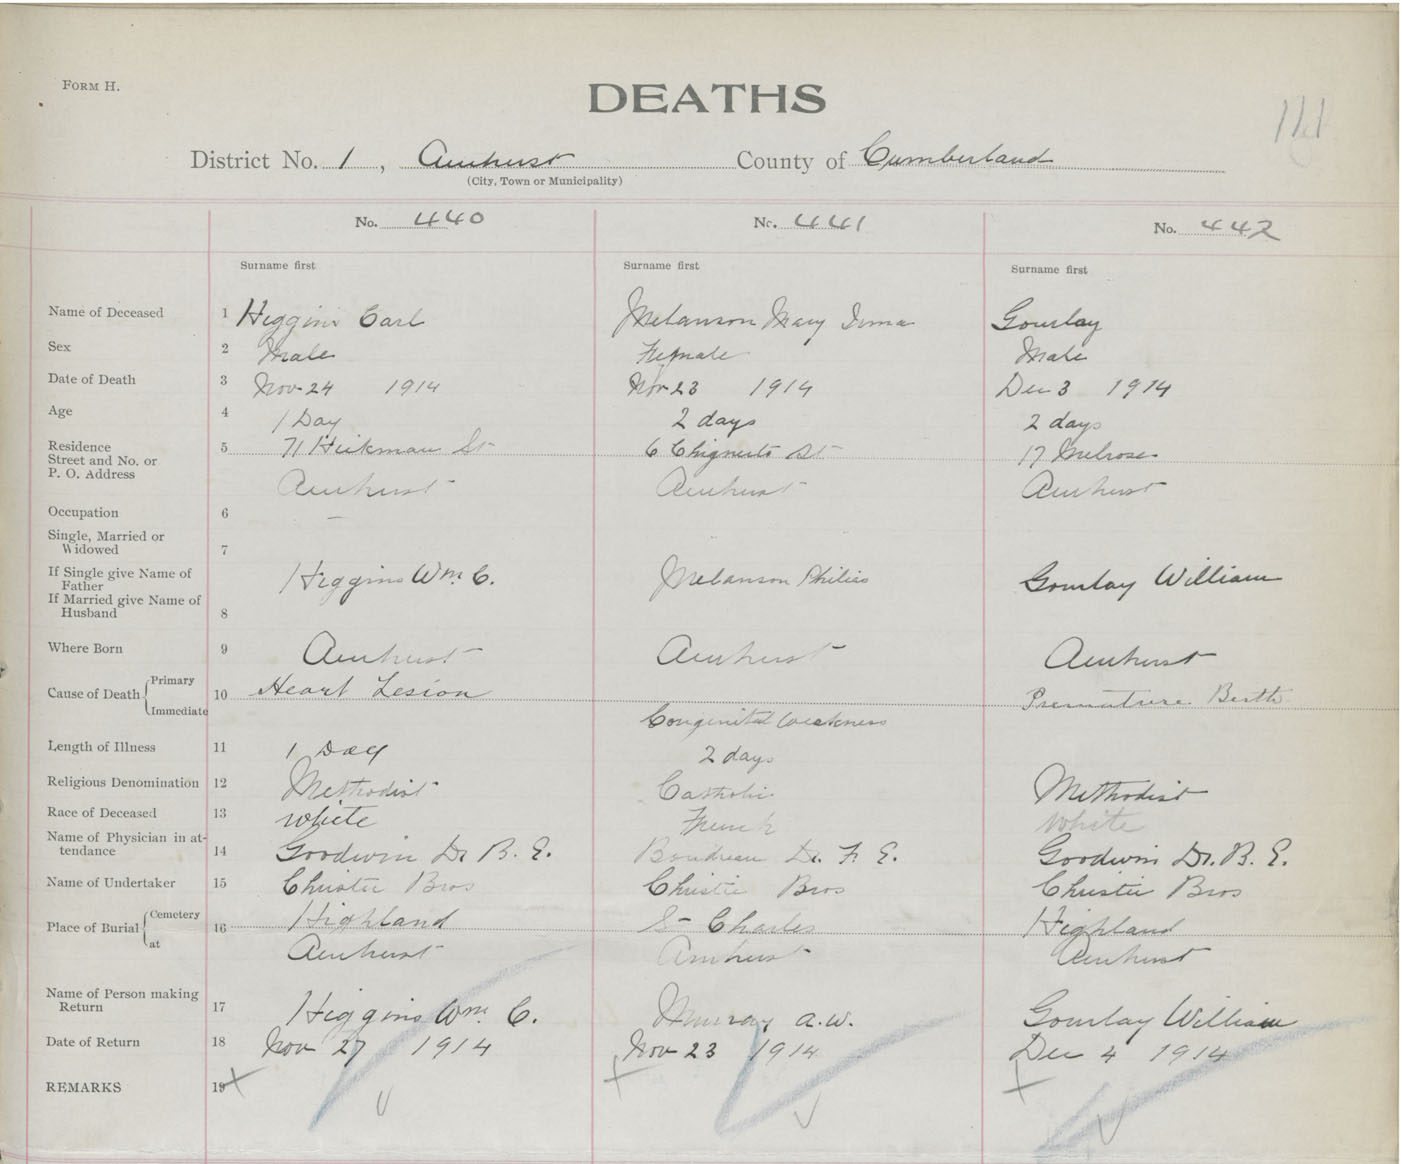 FORM H.
DEATHS
111
District No. 1, Amherst County of Cumberland
(City, Town or Municipality)
No. 440 No. 441 No. 442
Surname first Surname first Surname first
Name of Deceased 1 Higgins Carl Melanson Mary Irma Gourlay
Sex 2 Male Female Male
Date of Death 3 Nov 24 1914 Nov 23 1914 Dec 3 1914
Age 4 1 Day 2 days 2 days
Residence
Street and No. or 5 71 Hickman St 6 Chignecto St 17 Melrose
P. O. Address Amherst Amherst Amherst
Occupation 6 —
Single, Married or
Widowed 7
If Single give Name of Father Higgins Wm. C. Melanson Gourlay William
If Married give Name of
Husband 8
Where Born 9 Amherst Amherst Amherst
Cause of Death Primary 10 Heart Lesion Premature Birth
Immediate Congenital Weakness
Length of Illness 11 1 Day 2 days
Religious Denomination 12 Methodist Catholic Methodist
Race of Deceased 13 White French White
Name of Physician in at-
tendance 14 Goodwin Dr. B. E. Boudreau Dr. F. E. Goodwin Dr. B. E.
Name of Undertaker 15 Christie Bros Christie Bros Christie Bros
Place of Burial Cemetery 16 Highland St Charles Highland
at Amherst Amherst Amherst
Name of Person making
Return 17 Higgins Wm. C. Murray A.W. Gourlay William
Date of Return 18 Nov 27 1914 Nov 23 1914 Dec 4 1914
REMARKS 19